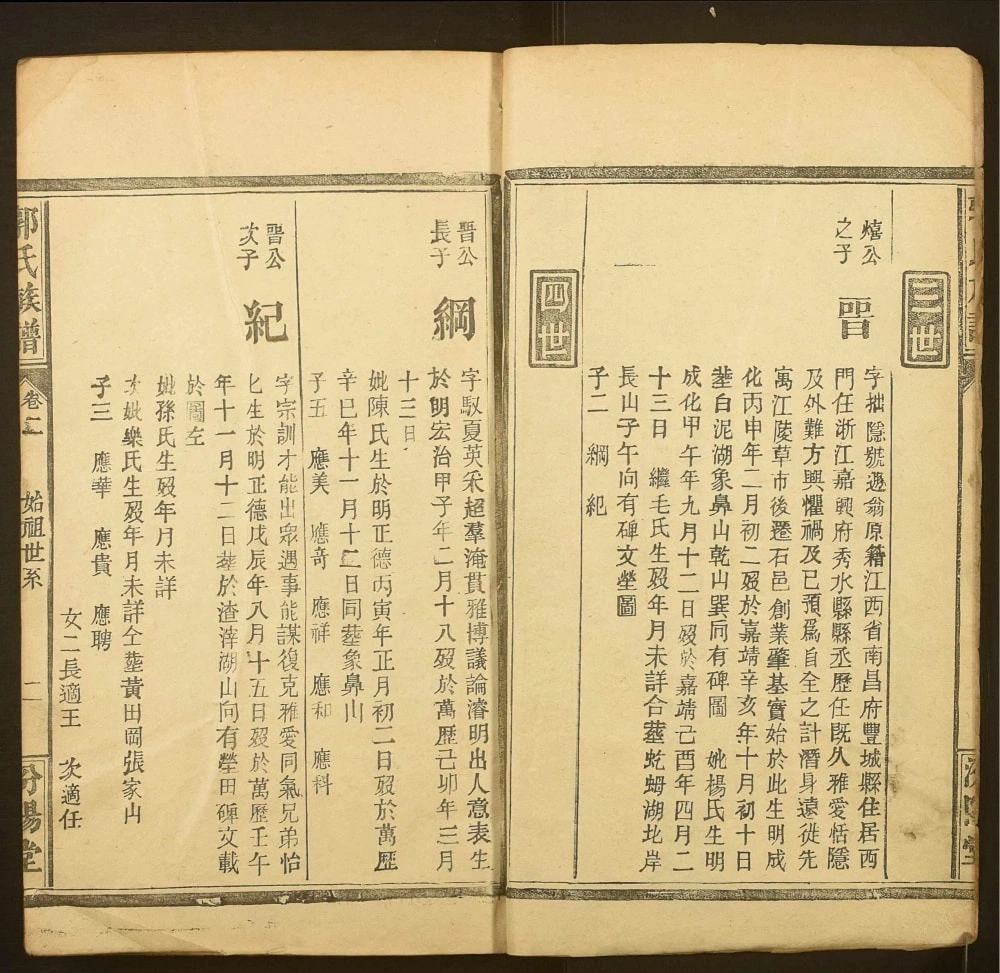 三世
熺公
之子
晋
字拙隱號遯翁原籍江西省南昌府豐城縣住居西
門任浙江嘉興府秀水縣縣丞歷任旣久雅愛恬隱
及外難方興懼禍及已預爲自全之計潛身遠徙先
寓江陵草市後遷石邑創業肇基實始於此生明成
化丙申年二月初二歿於嘉靖辛亥年十月初十日
塟白泥湖象鼻山乾山巽向有碑圖　妣楊氏生明
成化甲午年九月十二日歿於嘉靖己酉年四月二
十三日　繼毛氏生歿年月未詳合塟虼蛨湖北岸
長山子午向有碑文塋圖
子二　綱　紀
四世
晋公
長子
綱
字馭夏英采超羣淹貫雅博議論濬明出人意表生
於明宏治甲子年二月十八歿於萬歷己卯年三月
十三日
妣陳氏生於明正德丙寅年正月初二日歿於萬歷
辛巳年十一月十二日同塟象鼻山
子五　應美　應奇　應祥　應和　應科
晋公
次子
紀
字宗訓才能出衆遇事能謀復克雅愛同氣兄弟怡
匕生於明正德戊辰年八月十五日歿於萬歷壬午
年十一月十二日塟於渣滓湖山向有塋田碑文載
於圖左
妣孫氏生歿年月未詳
次妣樂氏生歿年月未詳仝塟黃田岡張家山
子三　應華　應貴　應聘
女二長適王　次適任
郭氏族譜
卷二
始祖世系
二
汾陽堂